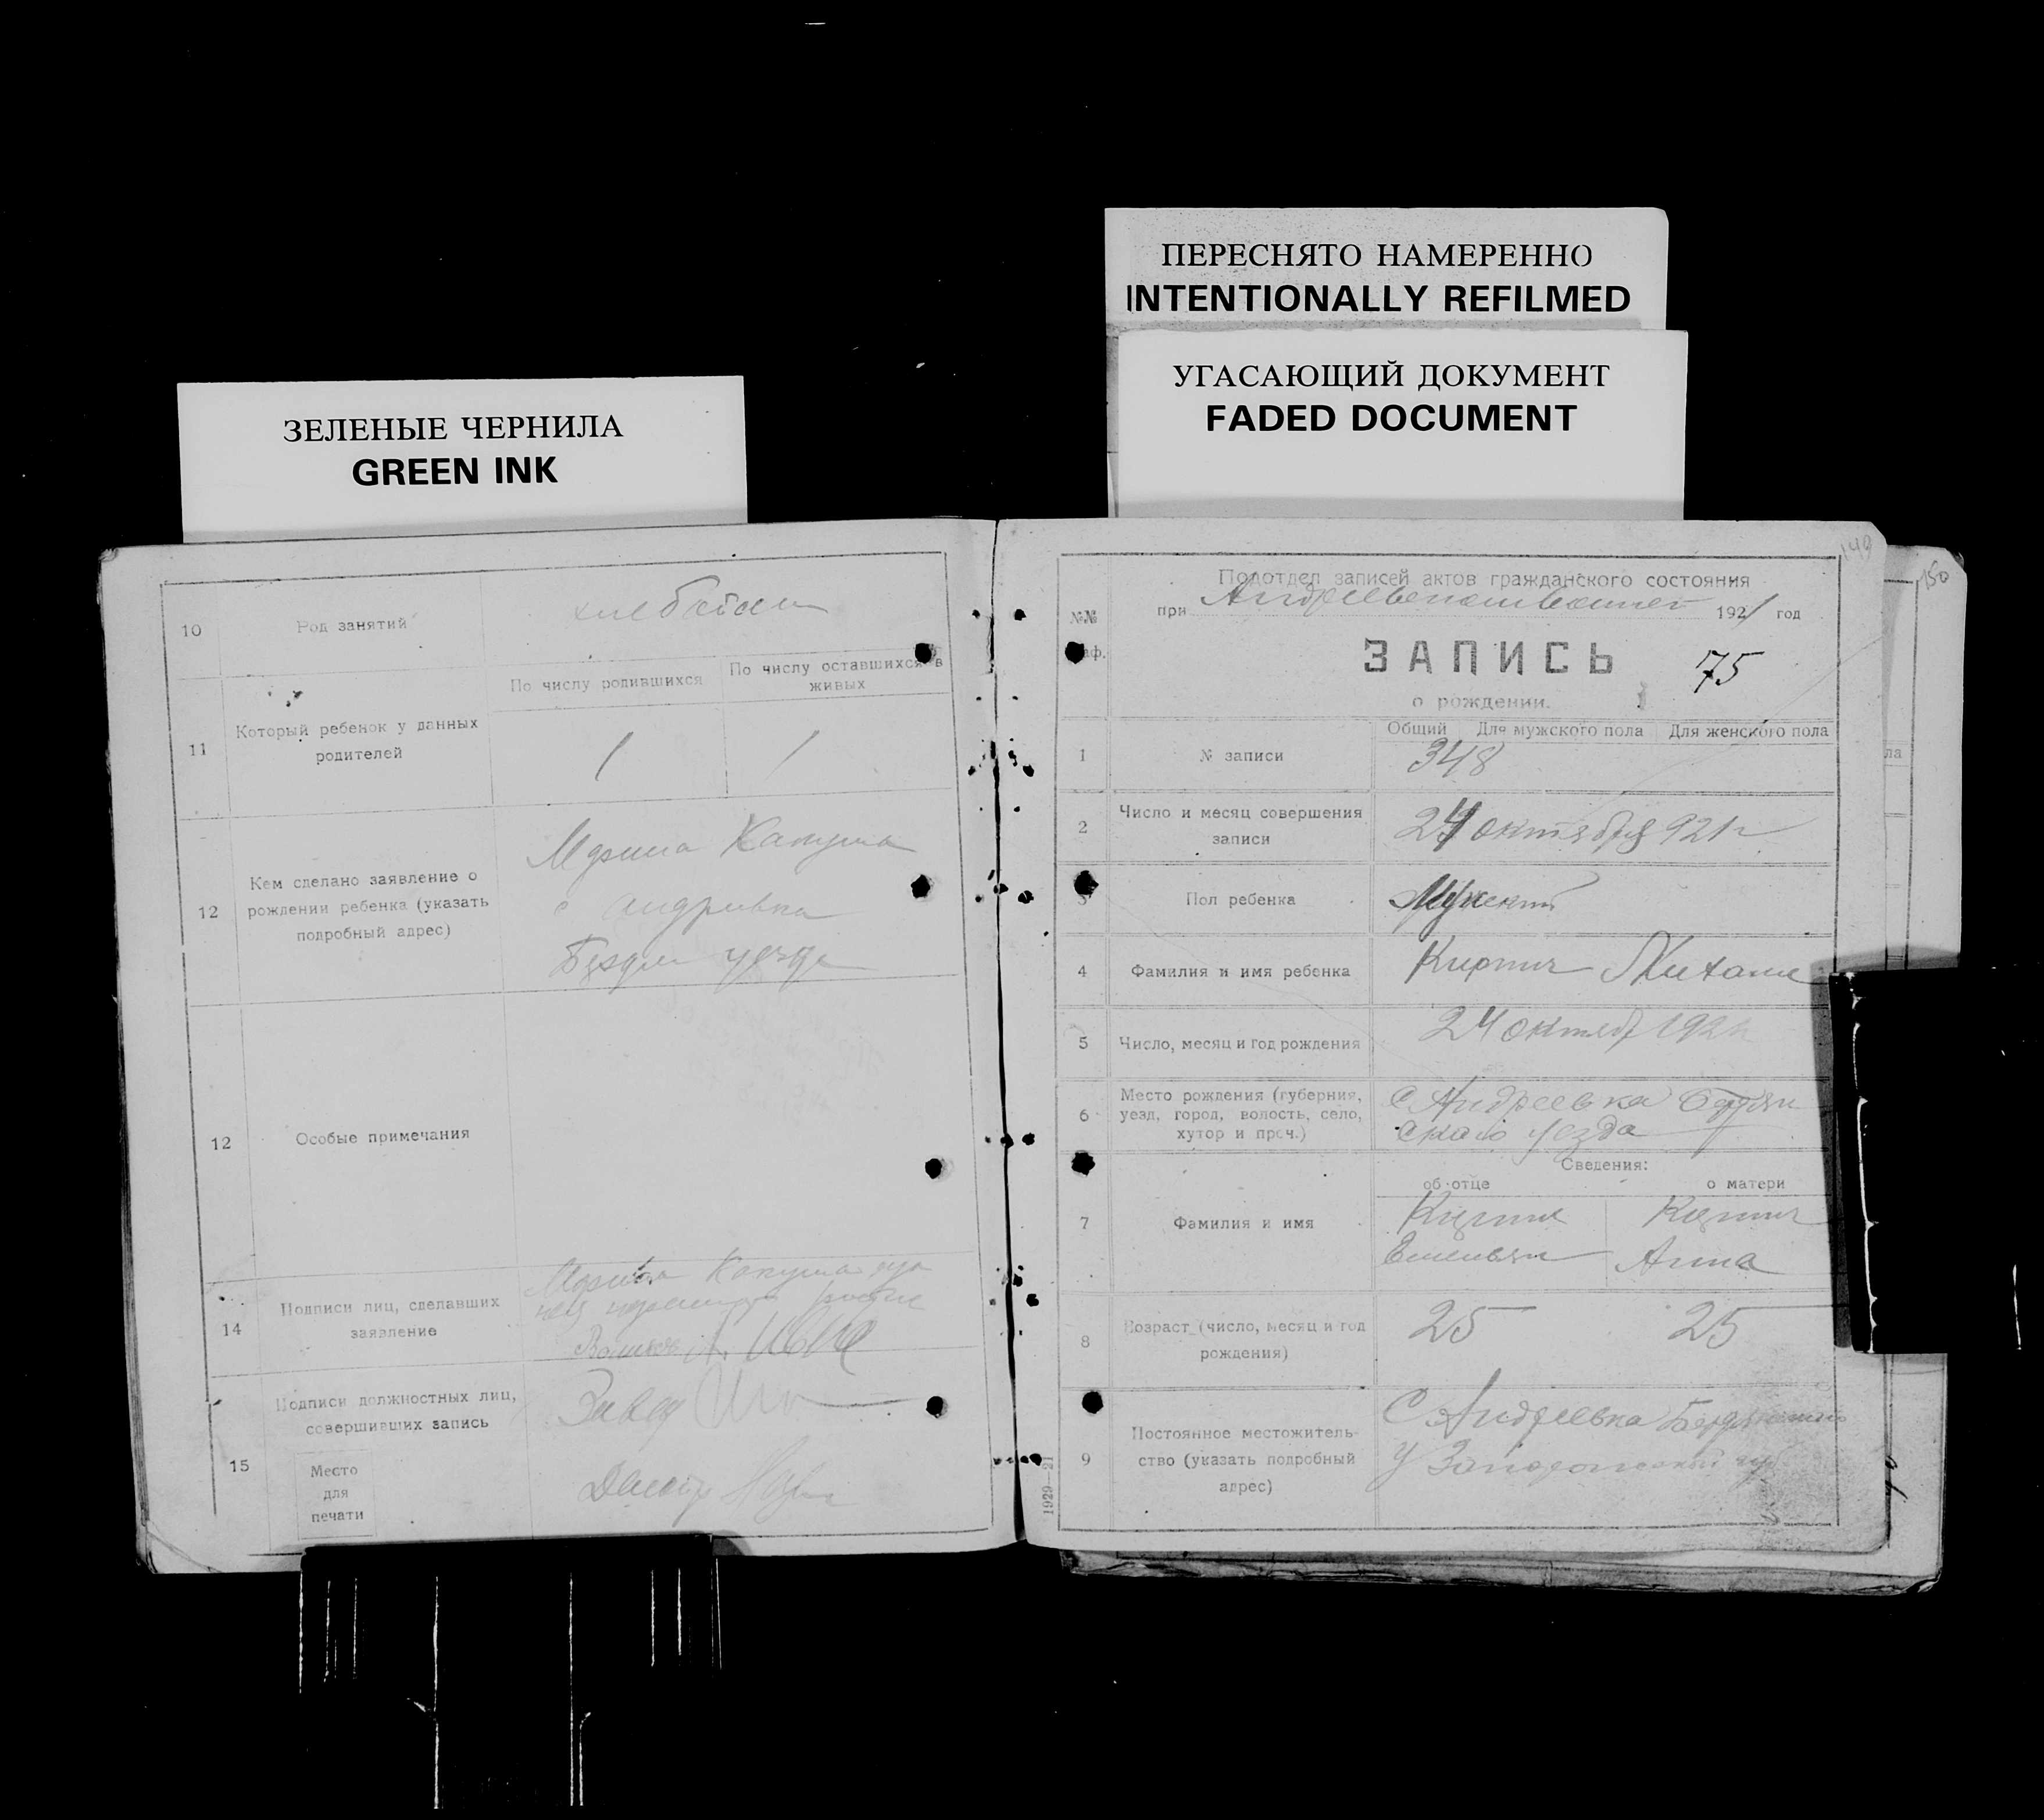 ПЕРЕСНЯТО НАМЕРЕННО
INTENTIONALLY REFILMED
УГАСАЮЩИЙ ДОКУМЕНТ
FADED DOCUMENT
ЗЕЛЕНЫЕ ЧЕРНИЛА
GREEN INK
10
Род занятий
11
Который ребенок у данных
родителей
По числу родившихся
По числу оставшихся в
живых
1
1
12
Кем сделано заявление о
рождении ребенка (указать
подробный адрес)
с Андривка
12
Особые примечания
14
Подписи лиц, сделавших
заявление
15
Подписи должностных лиц,
совершивших запись
Место
для
печати
Завед
149
150
Подотдел записей актов гражданского состояния
№№
при
1921 год
ЗАПИСЬ
75
о рождении.
Общий
Для мужского пола
Для женского пола
1
№ записи
348
2
Число и месяц совершения
записи
24 октября 921 г
3
Пол ребенка
Мужской
4
Фамилия и имя ребенка
Кирпич Михаил
5
Число, месяц и год рождения
24 октяб 192
6
Место рождения (губерния,
уезд, город, волость, село,
хутор и проч.)
с Андреевка Бердян
ского уезда
Сведения:
об отце
о матери
7
Фамилия и имя
Кирпич
Емельян
Кирпич
Анна
8
Возраст (число, месяц и год
рождения)
25
25
9
Постоянное местожитель-
ство (указать подробный
адрес)
С Андреевка Бердянского
У
1929—21
ла